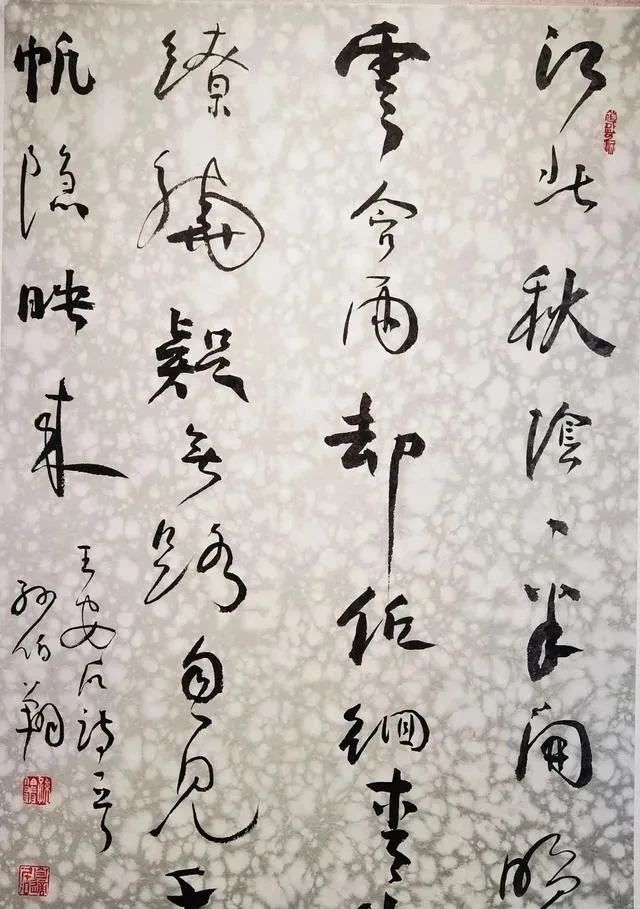 江北秋陰一半開晚
雲含雨却低徊青
繚繞疑無路忽見千
帆隱映來
王安石詩一首
孫伯翔